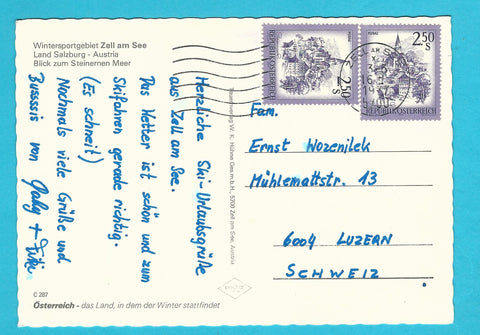 Wintersportgebiet Zell am See
Land Salzburg - Austria
Blick zum Steinernen Meer
Herzliche Ski-Urlaubsgrüße
aus Zell am See.
Das Wetter ist schön und zum
Skifahren gerade richtig.
(Es schneit)
Nochmals viele Grüße und
Busssis von Gaby +
C 287
Österreich - das Land, in dem der Winter stattfindet
5700 Zell am See, Austria
MURAU
2.50
S
REPUBLIK ÖSTERREICH
MURAU
2.50
S
REPUBLIK ÖSTERREICH
Fam.
Ernst Wozenilek
Mühlemattstr. 13
6004 LUZERN
SCHWEIZ